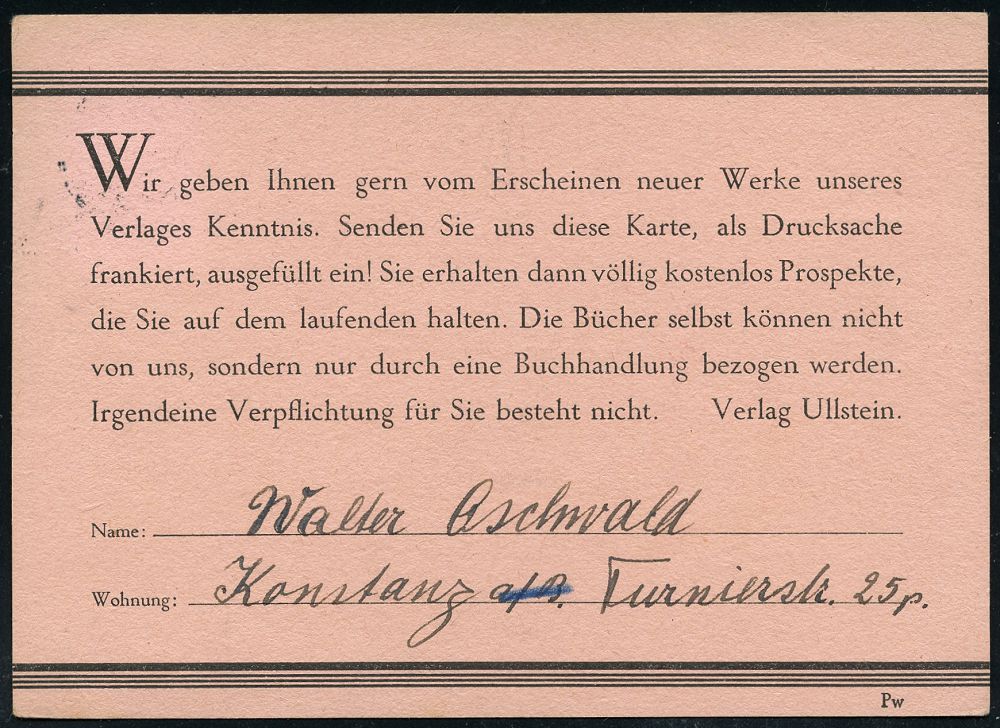 Wir geben Ihnen gern vom Erscheinen neuer Werke unseres
Verlages Kenntnis. Senden Sie uns diese Karte, als Drucksache
frankiert, ausgefüllt ein! Sie erhalten dann völlig kostenlos Prospekte,
die Sie auf dem laufenden halten. Die Bücher selbst können nicht
von uns, sondern nur durch eine Buchhandlung bezogen werden.
Irgendeine Verpflichtung für Sie besteht nicht. Verlag Ullstein.
Name: Walter Aschwald
Wohnung: Konstanz a/B. Turnierstr. 25p.
Pw